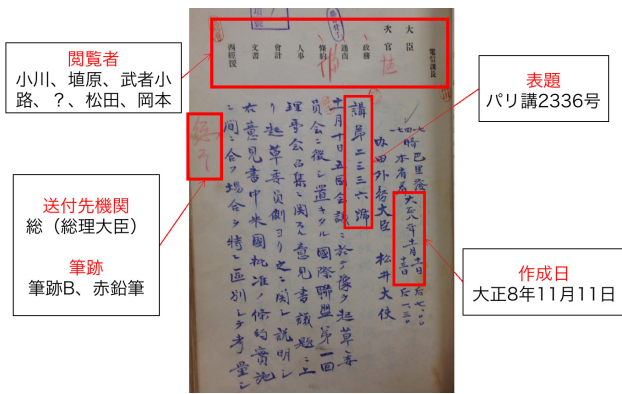 閲覧者
小川、埴原、武者小
路、?、松田、岡本
送付先機関
総(総理大臣)
筆跡
筆跡B、赤鉛筆
表題
パリ講2336号
作成日
大正8年11月11日
電信課長
大臣
次官
政務
通商
條約
人事
會計
文書
巴里發
本省着 大正八年十一月
内田外務大臣 松井大使
講第二三三六號
十一月十日五國会議ニ於テ
員会ニ後 置キタル國際聯盟第一回
理事会召集ニ関スル意見書議題ニ上
リ起草委員側ヨリ之ニ関シ説明シ
右意見書中米國批准ノ條約實施
ニ間ニ合フ場合ヲ特ニ区別シテ考量シ